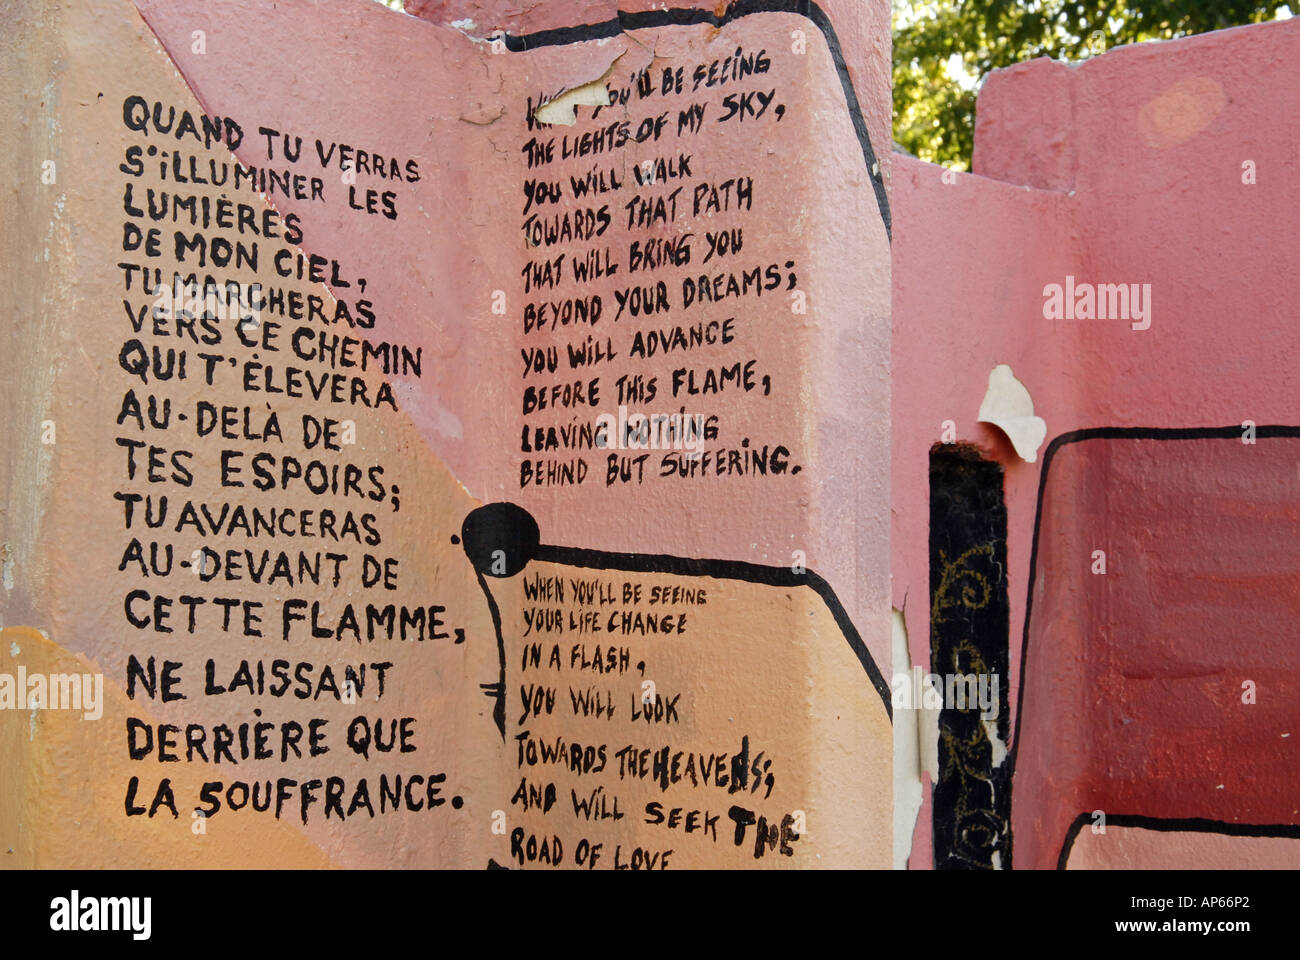 QUAND TU VERRAS
S'iLLUMINER LES
LUMIÈRES
DE MON CIEL,
TU MARCHERAS
VERS CE CHEMIN
QUI T'ÉLEVERA
AU-DELÀ DE
TES ESPOIRS;
TU AVANCERAS
AU-DEVANT DE
CETTE FLAMME,
NE LAISSANT
DERRIÈRE QUE
LA SOUFFRANCE.
YOU'LL BE SEEING
THE LIGHTS OF MY SKY,
YOU WiLL WALK
TOWARDS THAT PATH
THAT WiLL BRING YOU
BEYOND YOUR DREAMS;
YOU WiLL ADVANCE
BEFORE THiS FLAME,
LEAViNG NOTHiNG
BEHIND BUT SUFFERING.
WHEN YOU'LL BE SEEING
YOUR LiFE CHANGE
IN A FLASH,
YOU WiLL LOOK
TOWARDS THE HEAVENS;
AND WiLL SEEK THE
ROAD OF LOVE
alamy
alamy
Image ID: AP66P2
www.alamy.com